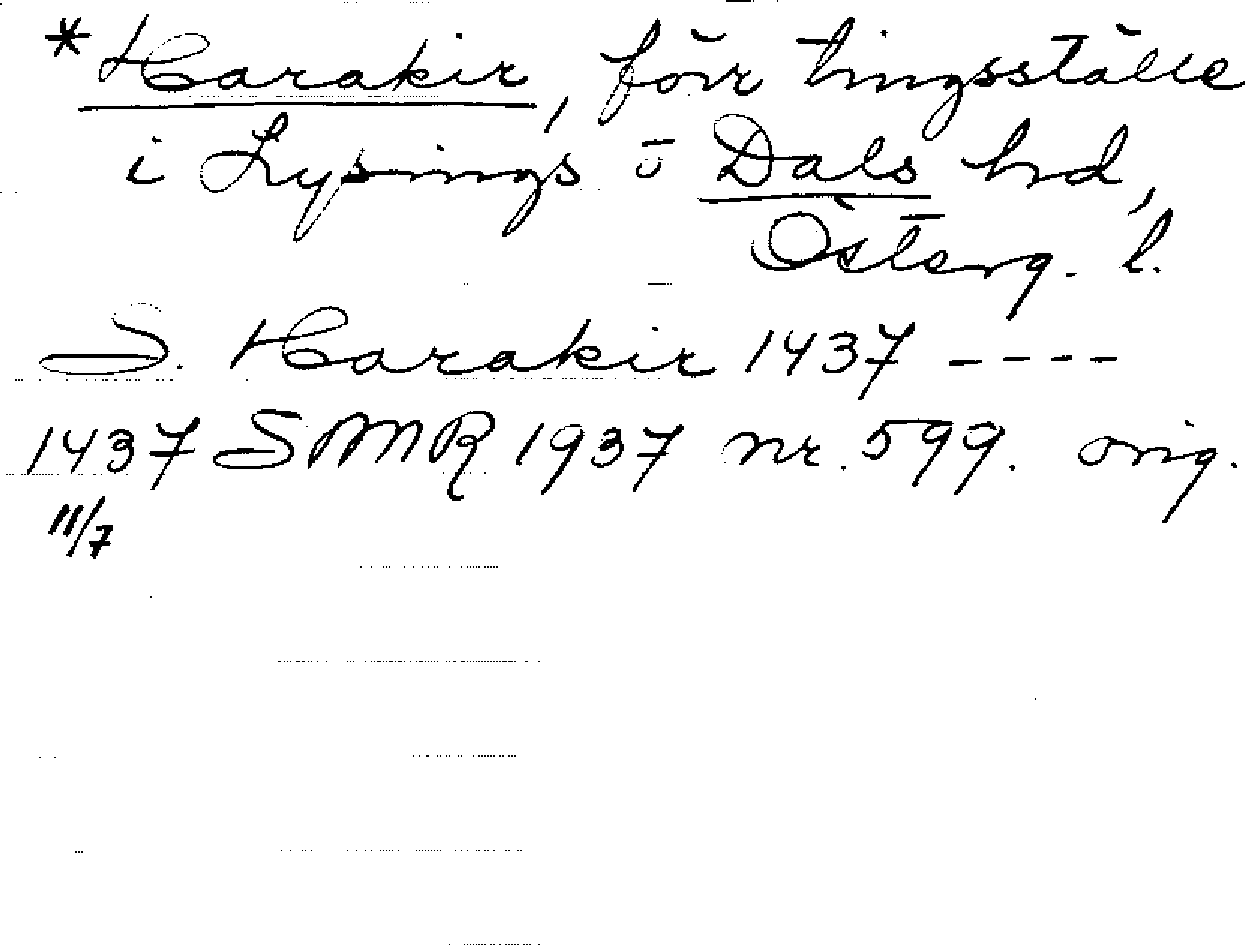 *Harakir, förr tingsställe
i Lysings o Dals hrd,
Österg. l.
S. Harakir 1437 ----
1437 SMR 1937 nr. 599. orig.
11/7